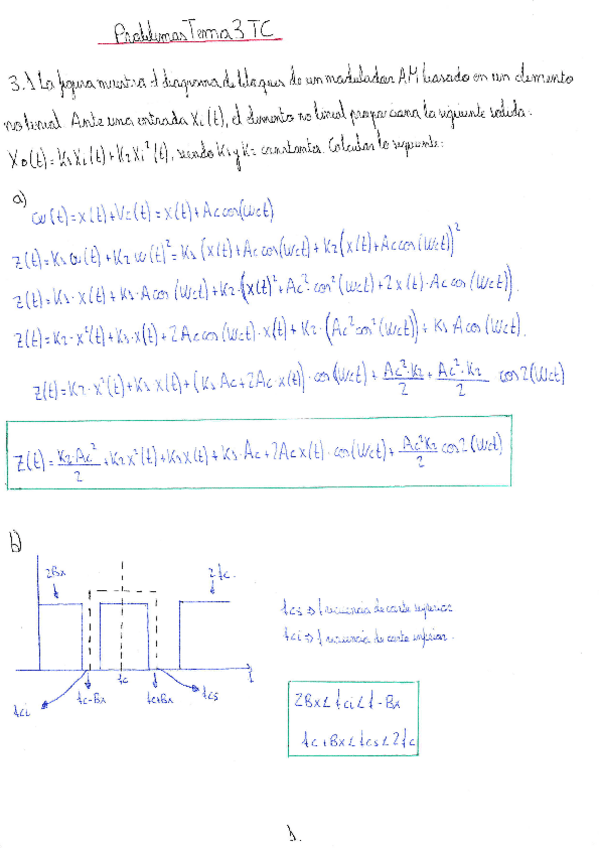 Problemas Tema 3 TC
3.1 La figura muestra el diagrama de bloques de un modulador AM basado en un elemento
no lineal. Ante una entrada Xi(t), el elemento no lineal proporciona la siguiente salida:
Xo(t)=K1Xi(t)+K2Xi²(t), siendo K1 y K2 constantes. Calcular lo siguiente:
a)
ω(t)=x(t)+Vc(t)=x(t)+Ac cos(Wct)
z(t)=K1 ω(t)+K2 ω(t)²=K1(x(t)+Ac cos(Wct)+K2(x(t)+Ac cos(Wct))²
z(t)=K1·x(t)+K1·Acos(Wct)+K2·(x(t)²+Ac²·cos²(Wct)+2x(t)·Ac cos(Wct)).
z(t)=K2·x²(t)+K1·x(t)+2Ac cos(Wct)·x(t)+K2·(Ac²cos²(Wct))+K1 Acos(Wct).
z(t)=K2·x²(t)+K1 x(t)+(K1 Ac+2Ac·x(t))·cos(Wct)+Ac²·K2/2+Ac²·K2/2 cos2(Wct)
z(t)=K2·Ac²/2+K2x²(t)+K1x(t)+K1·Ac+2Acx(t)·cos(Wct)+Ac²K2/2 cos2(Wct)
b)
2Bx
2fc.
fcs => frecuencia de corte superior
fci => frecuencia de corte inferior.
fc
f
fci
fc-Bx
fc+Bx
fcs
2Bx<fci<f-Bx
fc+Bx<fcs<2fc
1.